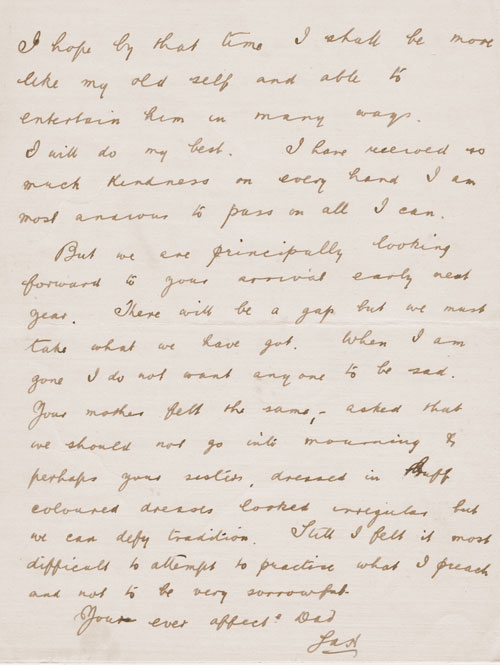 I hope by that time I shall be more
like my old self and able to
entertain him in many ways.
I will do my best. I have received so
much kindness on every hand I am
most anxious to pass on all I can.
But we are principally looking
forward to your arrival early next
year. There will be a gap but we must
take what we have got. When I am
gone I do not want anyone to be sad.
Your mother felt the same, - asked that
we should not go into mourning &
perhaps your sisters, dressed in Buff
coloured dresses looked irregular but
we can defy tradition. Still I felt it most
difficult to attempt to practise what I preach
and not to be very sorrowful.
Yours ever affect. Dad